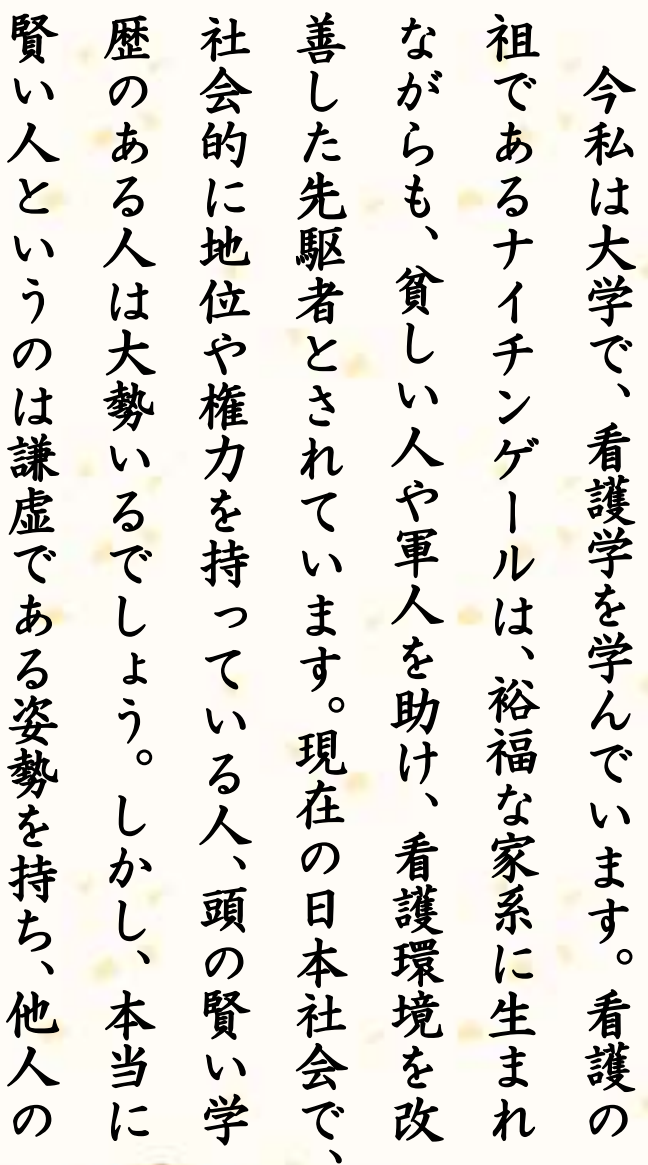 今私は大学で、看護学を学んでいます。看護の
祖であるナイチンゲールは、裕福な家系に生まれ
ながらも、貧しい人や軍人を助け、看護環境を改
善した先駆者とされています。現在の日本社会で、
社会的に地位や権力を持っている人、頭の賢い学
歴のある人は大勢いるでしょう。しかし、本当に
賢い人というのは謙虚である姿勢を持ち、他人の